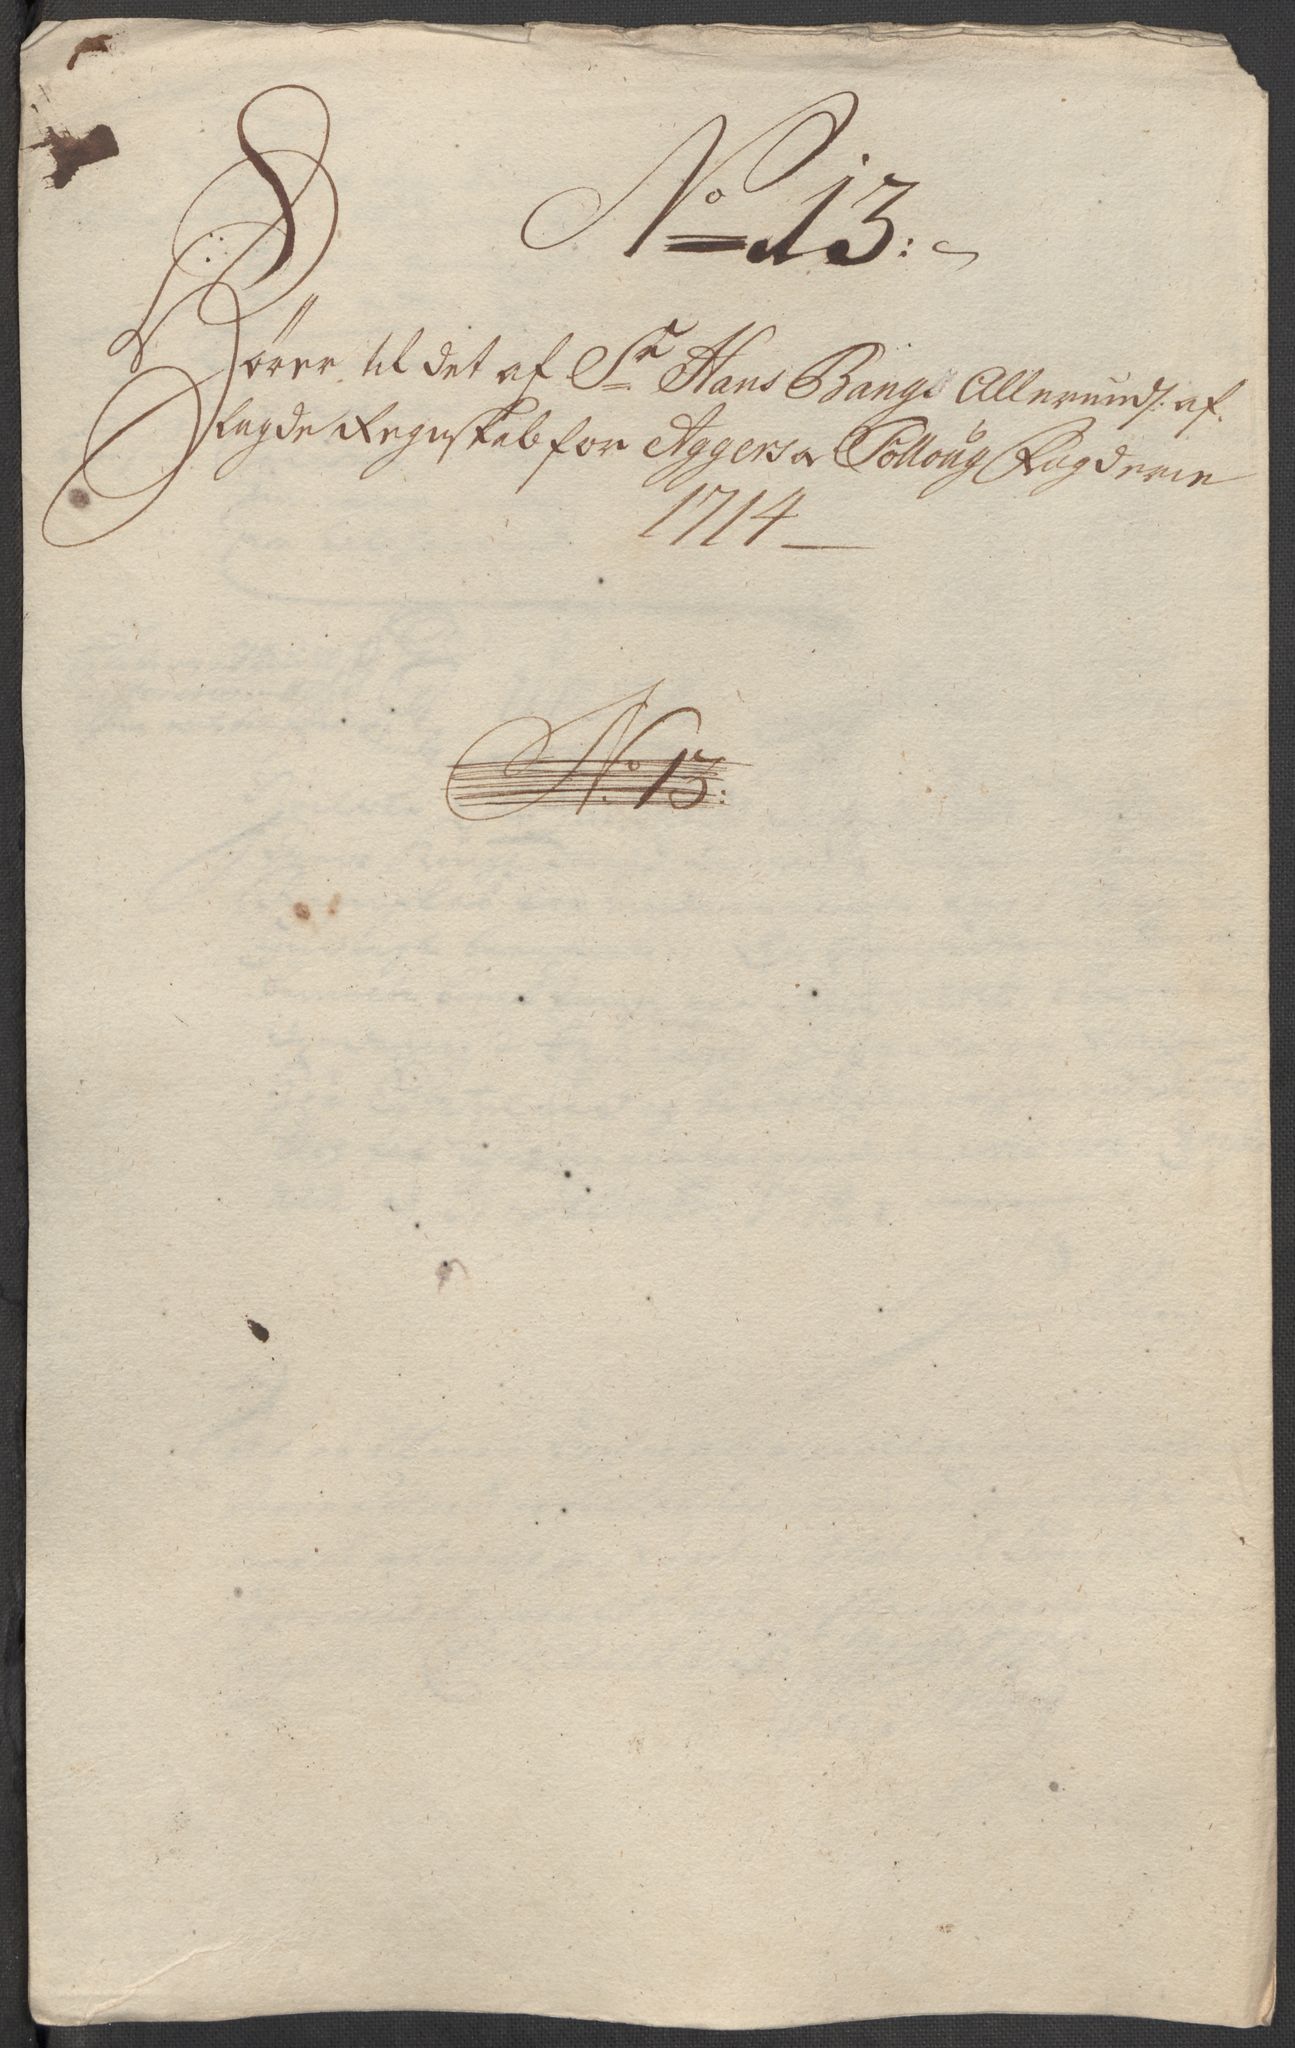 No 13:
Hörer til det af Sr Hans Bangs Allerund: af-
lagde Regnskab for Aggers Folloug Fogderie
1714
No 13: